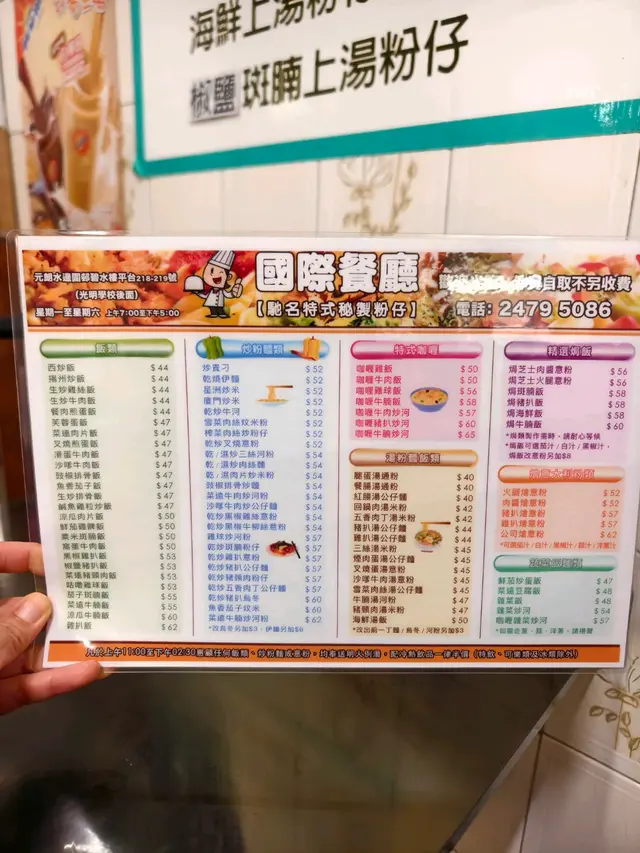 海鮮上湯粉仔
椒鹽斑腩上湯粉仔
元朗水邊圍邨碧水樓平台218-219號
(光明學校後面)
星期一至星期六 上午7:00至下午5:00
國際餐廳
【馳名特式秘製粉仔】
自取不另收費
電話: 2479 5086
飯類
西炒飯 $44
揚州炒飯 $44
生炒雞絲飯 $44
生炒牛肉飯 $44
餐肉煎蛋飯 $44
芙蓉蛋飯 $47
菜遠肉片飯 $47
叉燒煎蛋飯 $47
滑蛋牛肉飯 $47
沙嗲牛肉飯 $47
豉椒排骨飯 $47
魚香茄子飯 $47
生炒排骨飯 $47
鹹魚雞粒炒飯 $47
涼瓜肉片飯 $50
鮮茄雞髀飯 $50
粟米斑腩飯 $50
豬蛋牛肉飯 $50
黑椒豬扒飯 $53
椒鹽豬扒飯 $53
菜遠豬頸肉飯 $53
咕嚕雞球飯 $53
茄子斑腩飯 $55
菜遠牛腩飯 $55
涼瓜牛腩飯 $60
雜扒飯 $62
炒粉麵類
炒貴刁 $52
乾燒伊麵 $52
星洲炒米 $52
廈門炒米 $52
乾炒牛河 $52
雪菜肉絲炆米粉 $52
榨菜肉絲炒粉仔 $52
乾炒叉燒意粉 $52
乾/濕炒三絲河粉 $54
乾/濕炒肉絲麵 $54
乾/濕肉片炒米粉 $54
豉椒排骨炒麵 $54
菜遠牛肉炒河粉 $54
沙嗲牛肉炒公仔麵 $54
乾炒黑椒雞絲意粉 $54
乾炒黑椒牛柳絲意粉 $54
雞球炒河粉 $57
乾炒斑腩粉仔 $57
乾炒雞扒意粉 $57
乾炒豬扒公仔麵 $57
乾炒豬頸肉粉仔 $57
乾炒五香肉丁公仔麵 $57
乾炒豬扒烏冬 $60
魚香茄子炆米 $60
菜遠牛腩炒河粉 $62
*改烏冬另加$3，伊麵另加$6
特式咖喱
咖喱雞飯 $50
咖喱牛肉飯 $50
咖喱雞球飯 $56
咖喱牛腩飯 $58
咖喱牛肉炒河 $57
咖喱豬扒炒河 $60
咖喱牛腩炒河 $65
湯粉麵飯類
腿蛋湯通粉 $40
餐腸湯通粉 $40
紅腸湯公仔麵 $40
回鍋肉湯米粉 $42
五香肉丁湯米粉 $42
豬扒湯公仔麵 $44
雞扒湯公仔麵 $44
三絲湯米粉 $45
煙肉蛋湯公仔麵 $45
叉燒蛋湯意粉 $45
沙嗲牛肉湯意粉 $45
雪菜肉絲湯公仔麵 $45
牛腩湯河粉 $47
豬頸肉湯米粉 $47
海鮮湯飯 $50
*改出前一丁麵/烏冬/河粉另加$3
精選焗飯
焗芝士肉醬意粉 $56
焗芝士火腿意粉 $56
焗斑腩飯 $58
焗豬扒飯 $58
焗海鮮飯 $58
焗牛腩飯 $60
*焗類製作需時，請耐心等候
*焗飯可選茄汁/白汁/黑椒汁，
焗飯改意粉另加$8
火腿燴意粉 $52
肉醬燴意粉 $52
豬扒燴意粉 $57
雞扒燴意粉 $57
公司燴意粉 $62
*可選茄汁/白汁/黑椒汁/豉汁/洋蔥汁
鮮茄炒蛋飯 $47
菜遠豆腐飯 $48
雜菜飯 $48
雜菜炒河 $54
咖喱雜菜炒河 $57
*如需走蔥、蒜、洋蔥，請提醒
凡於上午11:00至下午02:30惠顧任何飯類、炒粉麵或意粉，均奉送明火例湯，配冷熱飲品一律半價 (特飲、可樂類及冰類除外)